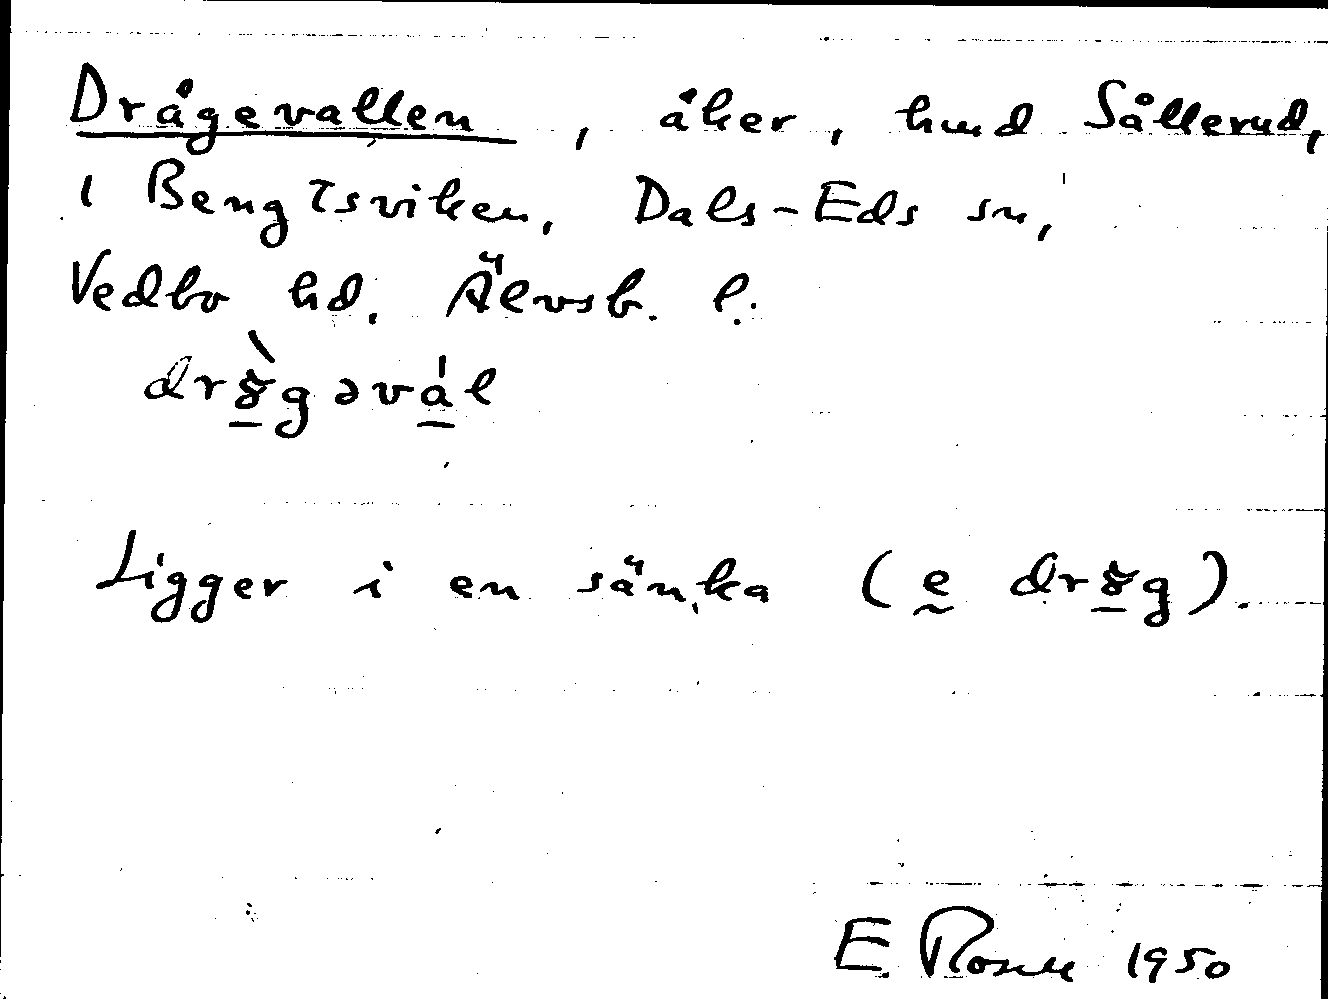 Drågevallen, åker, hmd Sållerud,
i Bengtsviken, Dals-Eds sn,
Vedbo hd, Älvsb. l.
Ligger i en sänka (e
E. 1950